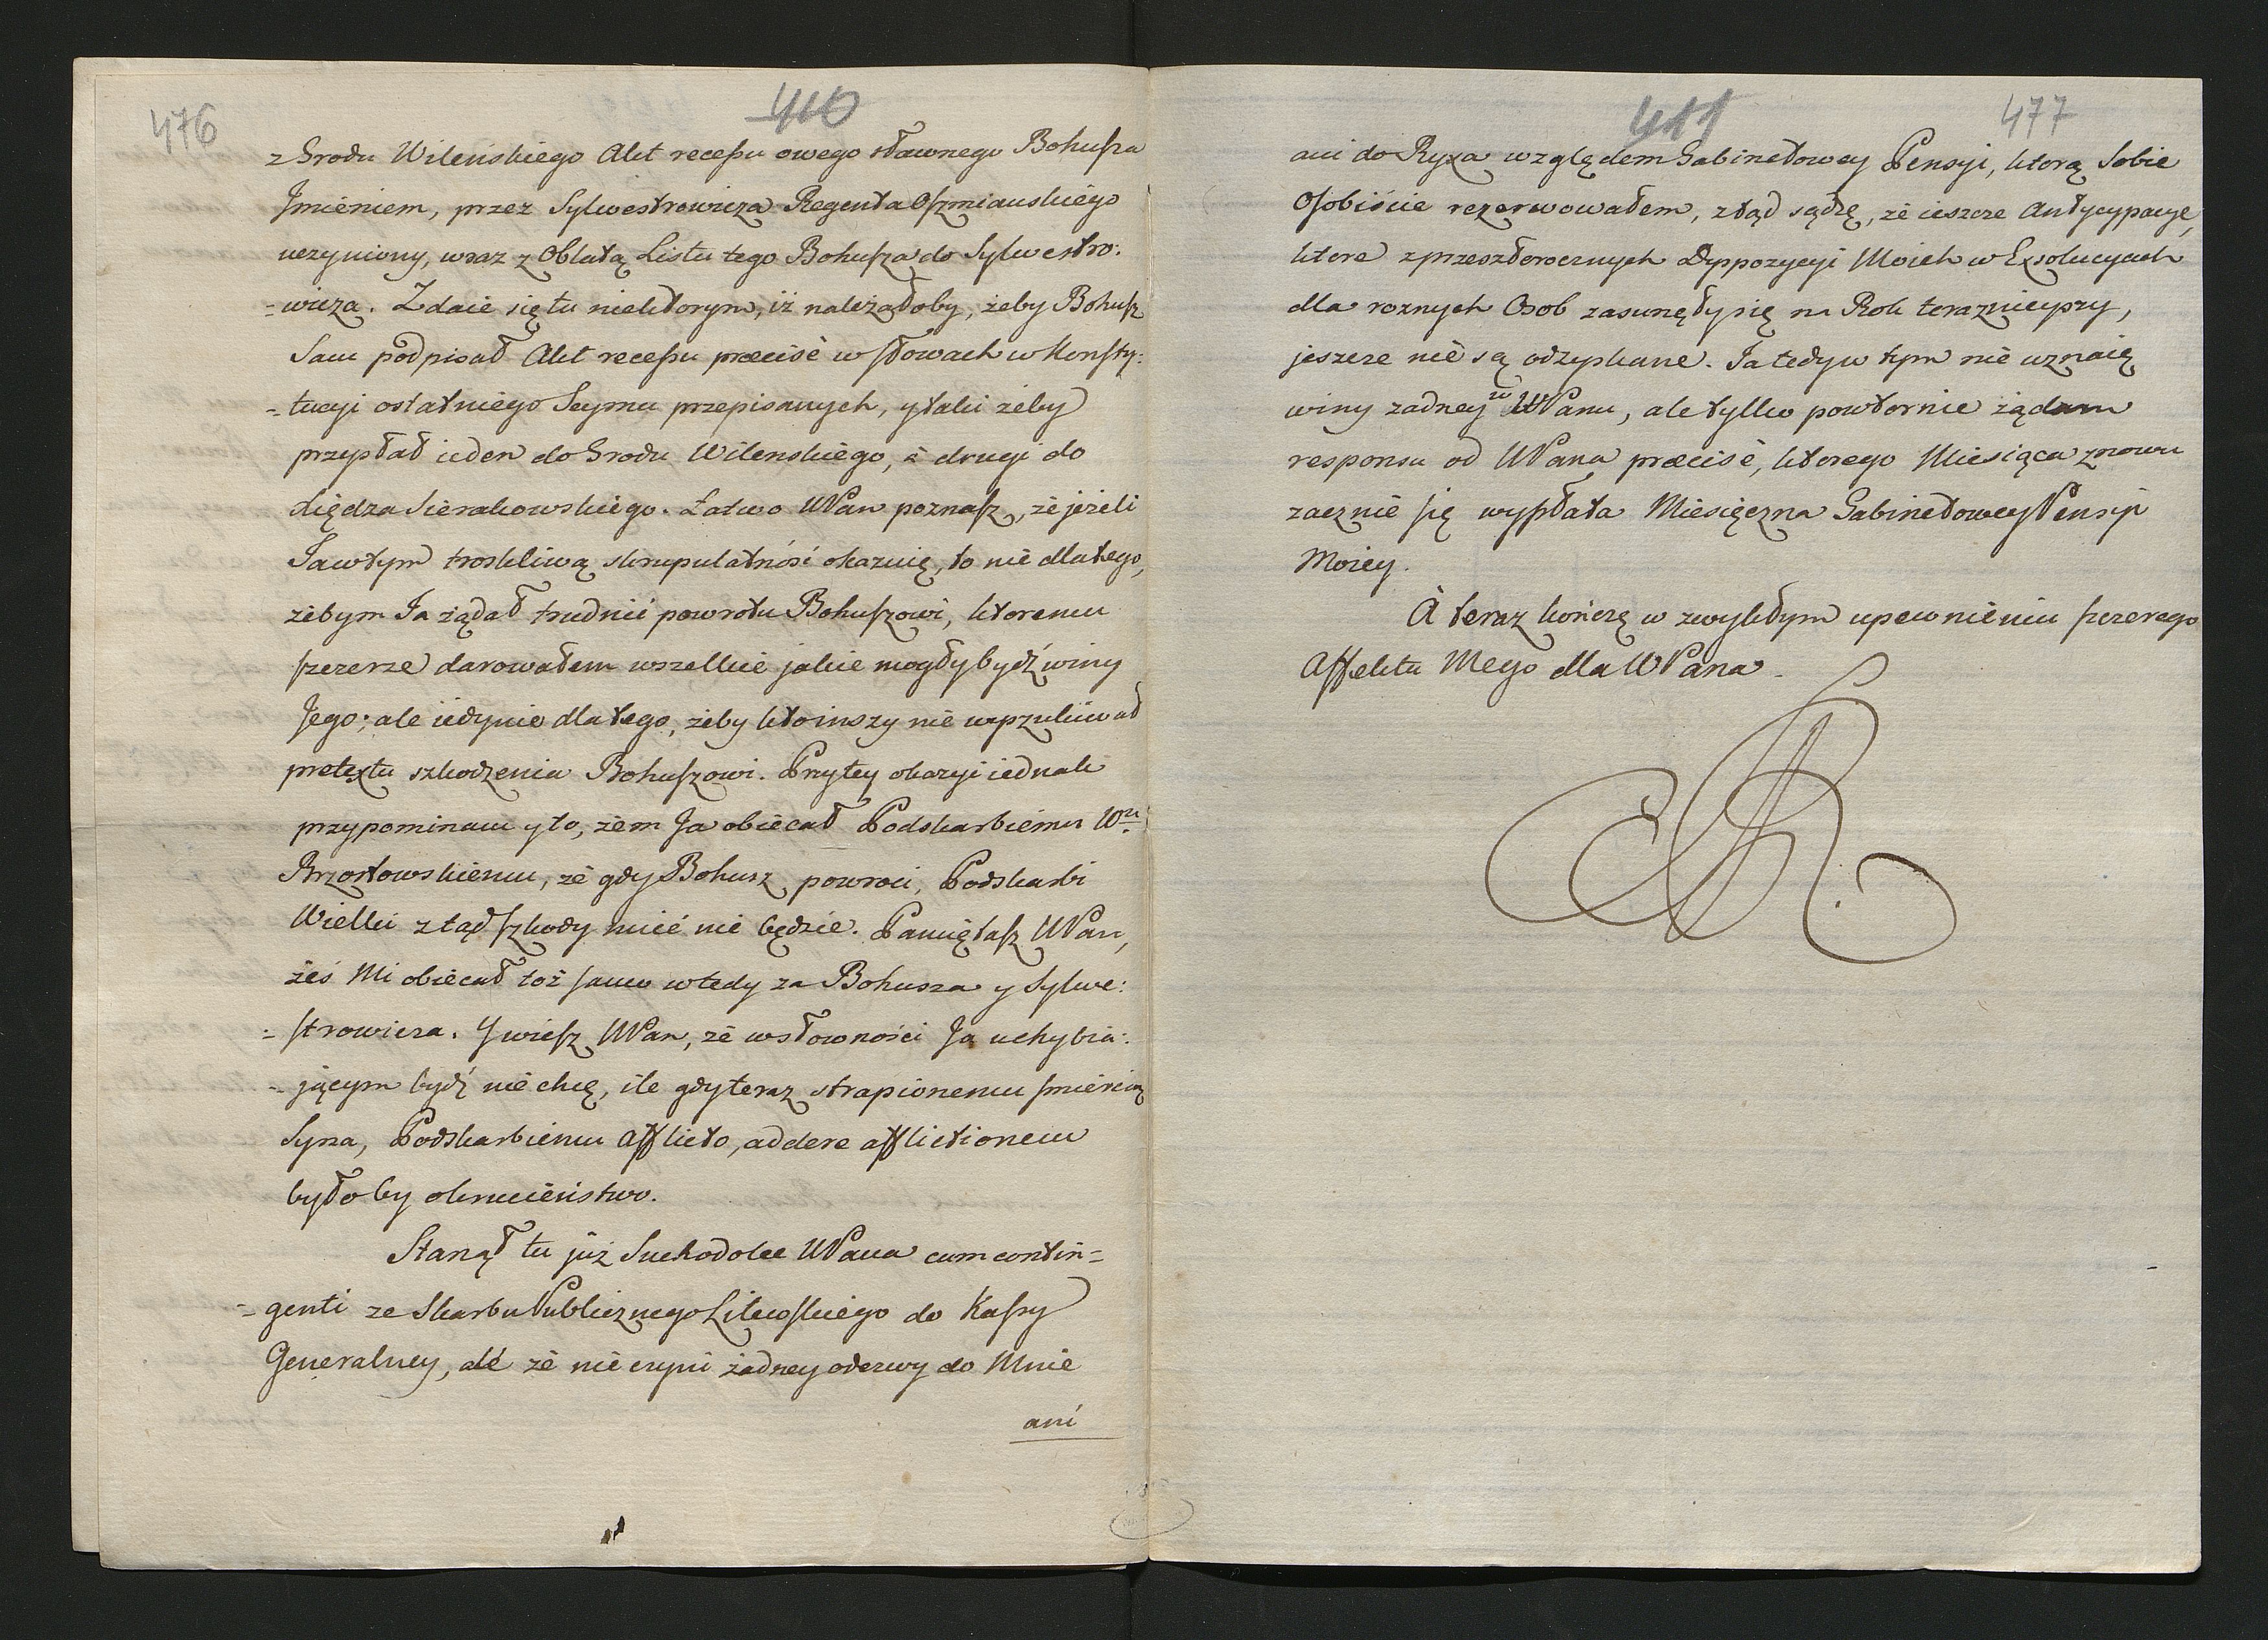 476
410
z Grodu Wilenskiego Akt recessu owego sławnego Bohusza
Jmieniem, przez Sylwestrowicza Regenta Oszmianskiego
uczyniony, wraz z Oblatą Listu tego Bohusza do Sylwestro:
=wicza. Zdaie się tu niektorym, iż należałoby, żeby Bohusz
Sam podpisał Akt recessu præcisè w słowach w Konsty:
=tucyi ostatniego Seymu przepisanych, y taki żeby
przysłał ieden do Grodu Wilenskiego, a drugi do
Xiędza Sierakowskiego. Łatwo WPan poznasz, że jeżeli
Ja w tym troskliwą skrupulatność okazuię, to nie dlatego,
żebym Ja żądał trudnić powrotu Bohuszowi, ktoremu
szczerze darowałem wszelkie jakie mogły bydź winy
Jego; ale iedynie dla tego, żeby kto inszy nie wyszukiwał
pretextu szkodzenia Bohuszowi. Przy tey okazyi iednak
przypominam y to, żem Ja obiecał Podskarbiemu Wu
Brzostowskiemu, że gdy Bohusz powroci, Podskarbi
Wielki ztąd szkody mieć nie będzie. Pamiętasz WPan,
żeś Mi obiecał toż samo wtedy za Bohusza y Sylwe:
=strowicza. Y wiesz WPan, że w słowności Ja uchybia:
=jącym bydź nie chcę, ile gdy teraz strapionemu śmiercią
Syna, Podskarbiemu afflicto, addere afflictionem
byłoby okrucieństwo.
Stanął tu już Suchodolec WPana cum contin=
=genti ze Skarbu Publicznego Litewskiego do Kassy
Generalney, ale że nie czyni żadney odezwy do Mnie
ani
411
477
ani do Ryxa względem Gabinetowey Pensyi, ktorą Sobie
Osobiście rezerwowałem, ztąd sądzę, że ieszcze Antycypacye,
ktore z przeszłorocznych Dyspozycyi Moich w Exolucyach
dla roznych Osob zasunęły się na Rok teraznieyszy,
jeszcze nie są odzyskane. Ja tedy w tym nie uznaię
winy zadney w WPanu, ale tylko powtornie żądam
responsu od WPana præcisè, ktorego Miesiąca znowu
zacznie się wypłata Miesięczna Gabinetowey Pensyi
Moiey.
A teraz kończę w zwykłym upewnieniu szczerego
Affektu Mego dla WPana.
SAR.